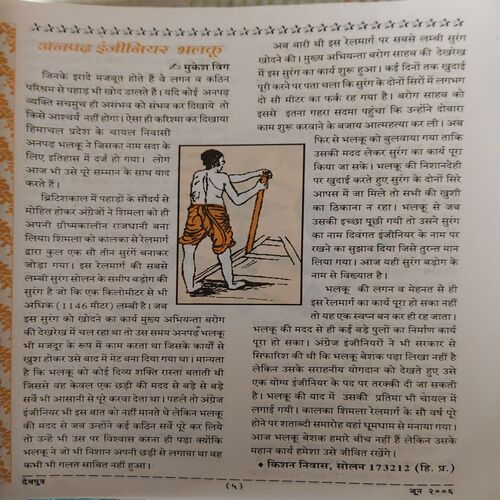 अनपढ़ इंजीनियर भलकू
मुकेश विग
जिनके इरादे मजबूत होते हैं वे लगन व कठिन
परिश्रम से पहाड़ भी खोद डालते हैं। यदि कोई अनपढ़
व्यक्ति सचमुच ही असंभव को संभव कर दिखाये तो
किसे आश्चर्य नहीं होगा। ऐसा ही करिश्मा कर दिखाया
हिमाचल प्रदेश के चायल निवासी
अनपढ़ भलकू ने जिसका नाम सदा के
लिए इतिहास में दर्ज हो गया। लोग
आज भी उसे पूरे सम्मान के साथ याद
करते हैं।
ब्रिटिशकाल में पहाड़ों के सौंदर्य से
मोहित होकर अंग्रेजों ने शिमला को ही
अपनी ग्रीष्मकालीन राजधानी बना
लिया। शिमला को कालका से रेलमार्ग
द्वारा कुल एक सौ तीन सुरंगें बनाकर
जोड़ा गया। इस रेलमार्ग की सबसे
लम्बी सुरंग सोलन के समीप बड़ोग की
सुरंग है जो कि एक किलोमीटर से भी
अधिक (1146 मीटर) लम्बी है। जब
इस सुरंग को खोदने का कार्य मुख्य अभियन्ता बरोग
की देखरेख में चल रहा था तो उस समय अनपढ़ भलकू
भी मजदूर के रूप में काम करता था जिसके कार्यों से
खुश होकर उसे बाद में मेट बना दिया गया था। मान्यता
है कि भलकू को कोई दिव्य शक्ति रास्ता बताती थी
जिससे वह केवल एक छड़ी की मदद से बड़े से बड़े
सर्वे भी आसानी से पूरे करवा देता था। पहले तो अंग्रेज
इंजीनियर भी इस बात को नहीं मानते थे लेकिन भलकू
की मदद से जब उन्होंने कई कठिन सर्वे पूरे कर लिये
तो उन्हें भी उस पर विश्वास करना ही पड़ा क्योंकि
भलकू ने जो भी निशान अपनी छड़ी से लगाया था वह
कभी भी गलत साबित नहीं हुआ।
अब बारी थी इस रेलमार्ग पर सबसे लम्बी सुरंग
खोदने की। मुख्य अभियन्ता बरोग साहब की देखरेख
में इस सुरंग का कार्य शुरू हुआ। कई दिनों तक खुदाई
पूरी करने पर पता चला कि सुरंग के दोनों सिरों में लगभग
दो सौ मीटर का फर्क रह गया है। बरोग साहब को
इससे इतना गहरा सदमा पहुंचा कि उन्होंने दोबारा
काम शुरू करवाने के बजाय आत्महत्या कर ली। अब
फिर से भलकू को बुलवाया गया ताकि
उसकी मदद लेकर सुरंग का कार्य पूरा
किया जा सके। भलकू की निशानदेही
पर खुदाई करते हुए सुरंग के दोनों सिरे
आपस में जा मिले तो सभी की खुशी
का ठिकाना न रहा। भलकू से जब
उसकी इच्छा पूछी गयी तो उसने सुरंग
का नाम दिवंगत इंजीनियर के नाम पर
रखने का सुझाव दिया जिसे तुरन्त मान
लिया गया। आज यही सुरंग बड़ोग के
नाम से विख्यात है।
भलकू की लगन व मेहनत से ही
इस रेलमार्ग का कार्य पूरा हो सका नहीं
तो यह एक स्वप्न बन कर ही रह जाता।
भलकू की मदद से ही कई बड़े पुलों का निर्माण कार्य
पूरा हो सका। अंग्रेज इंजीनियरों ने भी सरकार से
सिफारिश की थी कि भलकू बेशक पढ़ा लिखा नहीं है
लेकिन उसके सराहनीय योगदान को देखते हुए उसे
एक योग्य इंजीनियर के पद पर तरक्की दी जा सकती
है। भलकू की याद में उसकी प्रतिमा भी चायल में
लगाई गयी। कालका शिमला रेलमार्ग के सौ वर्ष पूरे
होने पर शताब्दी समारोह यहां धूमधाम से मनाया गया।
आज भलकू बेशक हमारे बीच नहीं हैं लेकिन उसके
महान कार्य हमेशा उसे जीवित रखेंगे।
♦ किशन निवास, सोलन 173212 (हि. प्र.)
देवपुत्र
(५)
जून २००६